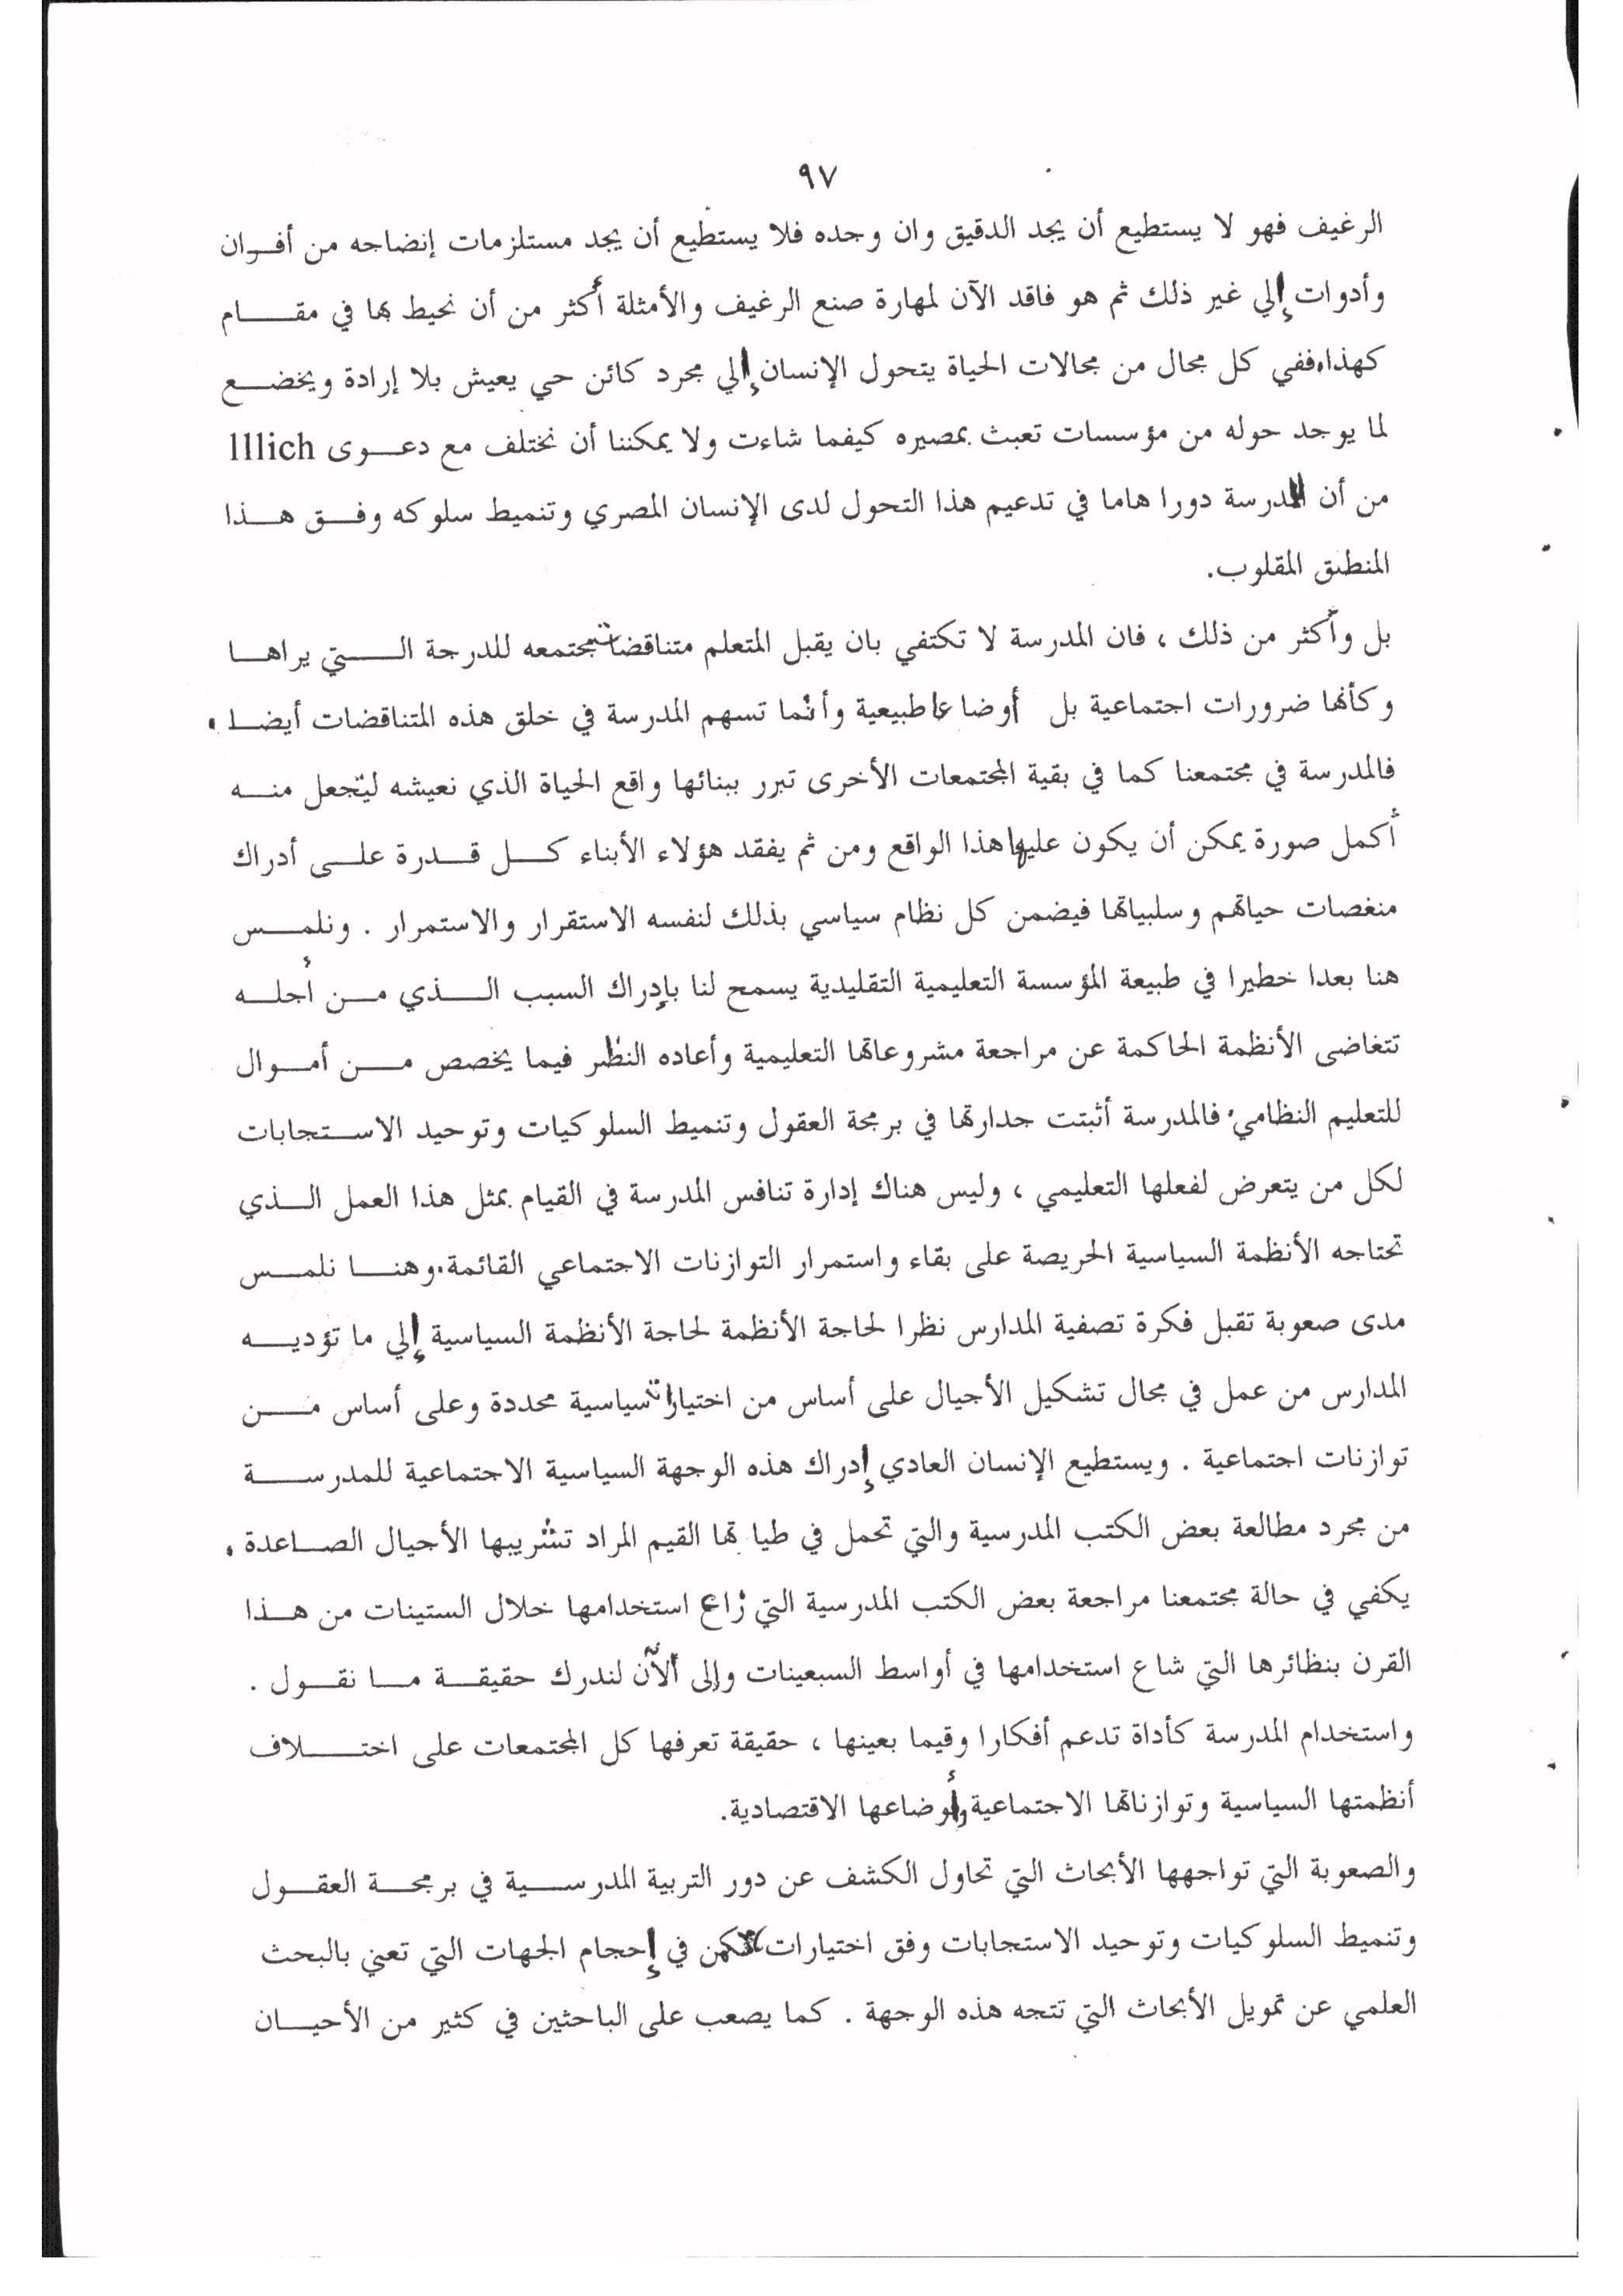 ٩٧
الرغيف فهو لا يستطيع أن يجد الدقيق وان وجده فلا يستطيع أن يجد مستلزمات إنضاجه من أفران
وأدوات إلي غير ذلك ثم هو فاقد الآن لمهارة صنع الرغيف والأمثلة أكثر من أن نحيط بها في مقام
كهذا، ففي كل مجال من مجالات الحياة يتحول الإنسان إلي مجرد كائن حي يعيش بلا إرادة ويخضع
لما يوجد حوله من مؤسسات تعبث بمصيره كيفما شاءت ولا يمكننا أن نختلف مع دعوى Illich
من أن للمدرسة دورا هاما في تدعيم هذا التحول لدى الإنسان المصري وتنميط سلوكه وفق هذا
المنطق المقلوب.
بل وأكثر من ذلك ، فان المدرسة لا تكتفي بان يقبل المتعلم متناقضات مجتمعه للدرجة التي يراها
وكأنها ضرورات اجتماعية بل أوضاعا طبيعية وأنما تسهم المدرسة في خلق هذه المتناقضات أيضا .
فالمدرسة في مجتمعنا كما في بقية المجتمعات الأخرى تبرر ببنائها واقع الحياة الذي نعيشه لتجعل منه
أكمل صورة يمكن أن يكون عليها هذا الواقع ومن ثم يفقد هؤلاء الأبناء كل قدرة على أدراك
منغصات حياتهم وسلبياتها فيضمن كل نظام سياسي بذلك لنفسه الاستقرار والاستمرار . ونلمس
هنا بعدا خطيرا في طبيعة المؤسسة التعليمية التقليدية يسمح لنا بإدراك السبب الذي من أجله
تتغاضى الأنظمة الحاكمة عن مراجعة مشروعاتها التعليمية وأعاده النظر فيما يخصص من أموال
للتعليم النظامي. فالمدرسة أثبتت جدارتها في برمجة العقول وتنميط السلوكيات وتوحيد الاستجابات
لكل من يتعرض لفعلها التعليمي ، وليس هناك إدارة تنافس المدرسة في القيام بمثل هذا العمل الذي
تحتاجه الأنظمة السياسية الحريصة على بقاء واستمرار التوازنات الاجتماعي القائمة. وهنا نلمس
مدى صعوبة تقبل فكرة تصفية المدارس نظرا لحاجة الأنظمة لحاجة الأنظمة السياسية إلي ما تؤديه
المدارس من عمل في مجال تشكيل الأجيال على أساس من اختيارات سياسية محددة وعلى أساس من
توازنات اجتماعية . ويستطيع الإنسان العادي إدراك هذه الوجهة السياسية الاجتماعية للمدرسة
من مجرد مطالعة بعض الكتب المدرسية والتي تحمل في طياتها القيم المراد تشريبها الأجيال الصاعدة .
يكفي في حالة مجتمعنا مراجعة بعض الكتب المدرسية التي استخدامها خلال الستينات من هذا
القرن بنظائرها التي شاع استخدامها في أواسط السبعينات وإلى ألآن لندرك حقيقة ما نقول .
واستخدام المدرسة كأداة تدعم أفكارا وقيما بعينها ، حقيقة تعرفها كل المجتمعات على اختلاف
أنظمتها السياسية وتوازناتها الاجتماعية وأوضاعها الاقتصادية.
والصعوبة التي تواجهها الأبحاث التي تحاول الكشف عن دور التربية المدرسية في برمجة العقول
وتنميط السلوكيات وتوحيد الاستجابات وفق اختيارات تكمن في إحجام الجهات التي تعني بالبحث
العلمي عن تمويل الأبحاث التي تتجه هذه الوجهة . كما يصعب على الباحثين في كثير من الأحيان